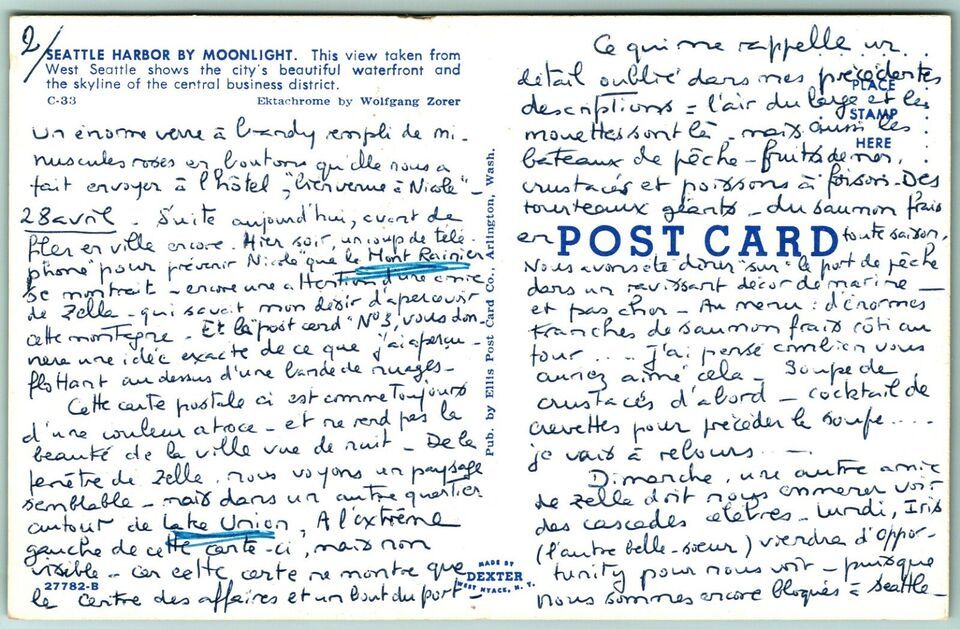 2/
SEATTLE HARBOR BY MOONLIGHT. This view taken from
West Seattle shows the city's beautiful waterfront and
the skyline of the central business district.
C-33 Ektachrome by Wolfgang Zorer
un énorme verre à brandy rempli de mi-
nuscules roses en boutons qu'elle nous a
fait envoyer à l'hôtel, "bienvenue à Nicole" -
28 avril. Suite aujourd'hui, avant de
filer en ville encore. Hier soir, un coup de télé-
phone pour prévenir Nicole que le Mont Rainier
se montrait - encore une attention d'une amie
de Zelle - qui savait mon désir d'apercevoir
cette montagne. Et la "post card" N°3, vous don-
nera une idée exacte de ce que j'ai aperçu -
flottant au dessus d'une bande de nuages -
Cette carte postale ci est comme toujours
d'une couleur atroce - et ne rend pas la
beauté de la ville vue de nuit - De la
fenêtre de Zelle, nous voyons un paysage
semblable - mais dans un autre quartier
autour de Lake Union, A l'extrême
gauche de cette carte-ci, mais non
visible - car cette carte ne montre que
le centre des affaires et un bout du port -
27782-B
Pub. by Ellis Post Card Co., Arlington, Wash.
MADE BY
DEXTER
WEST NYACK, N. Y.
POST CARD
PLACE
STAMP
HERE
Ce qui me rappelle un
détail oublié dans mes précédentes
descriptions = l'air du large et les
mouettes sont là - mais aussi les
bateaux de pêche - fruits de mer,
crustacés et poissons à foison. Des
tourteaux géants - du saumon frais
en toute saison.
Nous avons été dîner "sur" le port de pêche
dans un ravissant décor de marine -
et pas cher - Au menu: d'énormes
tranches de saumon frais rôti au
four .... j'ai pensé combien vous
auriez aimé cela - Soupe de
crustacés d'abord - cocktail de
crevettes pour précéder la soupe ....
je vais à relours ... -
Dimanche, une autre amie
de Zelle doit nous emmener voir
des cascades célèbres - Lundi, Iris
(l'autre belle-soeur) viendra d'oppor-
tunity pour nous voir - puisque
nous sommes encore bloqués à Seattle -